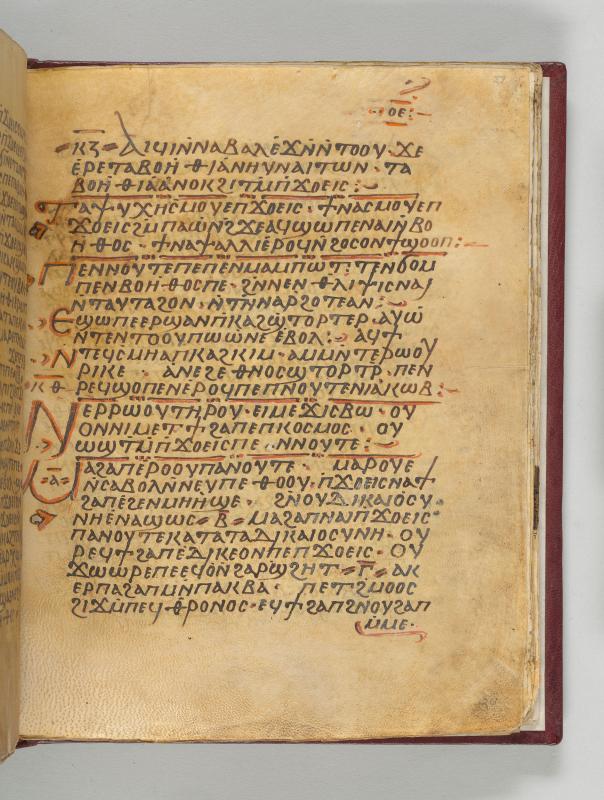 ⲟⲉ
ⲕⲍ ⲁⲓϥⲓⲛⲛⲁⲃⲁⲗⲉϫⲛⲛⲧⲟⲟⲩ · ϫⲉ
ⲉⲣⲉⲧⲁⲃⲟⲏⲑⲓⲁⲛⲏⲩⲛⲁⲓⲧⲱⲛ · ⲧⲁ
ⲃⲟⲏⲑⲓⲁⲁⲛⲟⲕϩⲓⲧⲙⲡϫⲟⲉⲓⲥ :
ⲧⲁⲯⲩⲭⲏⲥⲙⲟⲩⲉⲡϫⲟⲉⲓⲥ · ϯⲛⲁⲥⲙⲟⲩⲉⲡ
ϫⲟⲉⲓⲥϩⲙⲡⲁⲱⲛϩϫⲉⲁϥϣⲱⲡⲉⲛⲁⲓⲛⲃⲟ
ⲏⲑⲟⲥ · ϯⲛⲁⲯⲁⲗⲗⲓⲉⲣⲟϥⲛϩⲟⲥⲟⲛϯϣⲟⲟⲡ :
ⲡⲉⲛⲛⲟⲩⲧⲉⲡⲉⲡⲉⲛⲙⲁⲙⲡⲱⲧ · ⲧⲉⲛϭⲟⲙ
ⲡⲉⲛⲃⲟⲏⲑⲟⲥⲡⲉ · ϩⲛⲛⲉⲛⲑⲗⲓⲯⲓⲥⲛⲁⲓ
ⲛⲧⲁⲩⲧⲁϩⲟⲛ · ⲛⲧⲛⲛⲁⲣϩⲟⲧⲉⲁⲛ :
ⲉϣⲱⲡⲉⲉⲣϣⲁⲛⲡⲕⲁϩϣⲧⲟⲣⲧⲉⲣ · ⲁⲩⲱ
ⲛⲧⲉⲛⲧⲟⲟⲩⲡⲱⲱⲛⲉⲉⲃⲟⲗ : ⲁϥϯ
ⲛⲧⲉϥⲥⲙⲏⲁⲡⲕⲁϩⲕⲓⲙ · ⲁⲙⲙⲛⲧⲉⲣⲱⲟⲩ
ⲣⲓⲕⲉ · ⲁⲛϩⲉⲑⲛⲟⲥϣⲧⲟⲣⲧⲣ · ⲡⲉⲛ
ⲕⲑ ⲣⲉϥϣⲟⲡⲉⲛⲉⲣⲟϥⲡⲉⲡⲛⲟⲩⲧⲉⲛⲓⲁⲕⲱⲃ :
ⲛⲉⲣⲣⲱⲟⲩⲧⲏⲣⲟⲩ · ⲉⲓⲙⲉϫⲓⲥⲃⲱ · ⲟⲩ
ⲟⲛⲛⲓⲙⲉⲧϯϩⲁⲡⲉⲡⲕⲟⲥⲙⲟⲥ · ⲟⲩ
ⲱϣⲧⲙⲡϫⲟⲉⲓⲥⲡⲉ · ⲛⲛⲟⲩⲧⲉ :
ⲙⲁϩⲁⲡⲉⲣⲟⲟⲩⲡⲁⲛⲟⲩⲧⲉ · ⲙⲁⲣⲟⲩⲉ
ⲁ ⲛⲥⲁⲃⲟⲗⲛⲛⲉⲩⲡⲉⲑⲟⲟⲩ · ⲡϫⲟⲉⲓⲥⲛⲁϯ
ϩⲁⲡⲉϩⲉⲛⲙⲏⲏϣⲉ · ϩⲛⲟⲩⲇⲓⲕⲁⲓⲟⲥⲩ ·
ⲛⲏⲉⲛⲁϣⲱⲥ ⲃ ⲙⲁϩⲁⲡⲛⲁⲓⲡϫⲟⲉⲓⲥ
ⲡⲁⲛⲟⲩⲧⲉⲕⲁⲧⲁⲧⲁⲇⲓⲕⲁⲓⲟⲥⲩⲛⲏ · ⲟⲩ
ⲣⲉϥϯϩⲁⲡⲉⲇⲓⲕⲉⲟⲛⲡⲉⲡϫⲟⲉⲓⲥ · ⲟⲩ
ϫⲱⲱⲣⲉⲡⲉⲉϥⲟⲛϩⲁⲣϣϩⲏⲧ ⲅ ⲁⲕ
ⲉⲣⲡⲁϩⲁⲡⲙⲛⲡⲁⲕⲃⲁ · ⲡⲉⲧϩⲙⲟⲟⲥ
ϩⲓϫⲙⲡⲉϥⲑⲣⲟⲛⲟⲥ · ⲉϥϯϩⲁⲡϩⲛⲟⲩϩⲁⲡ
ⲙⲙⲉ ·